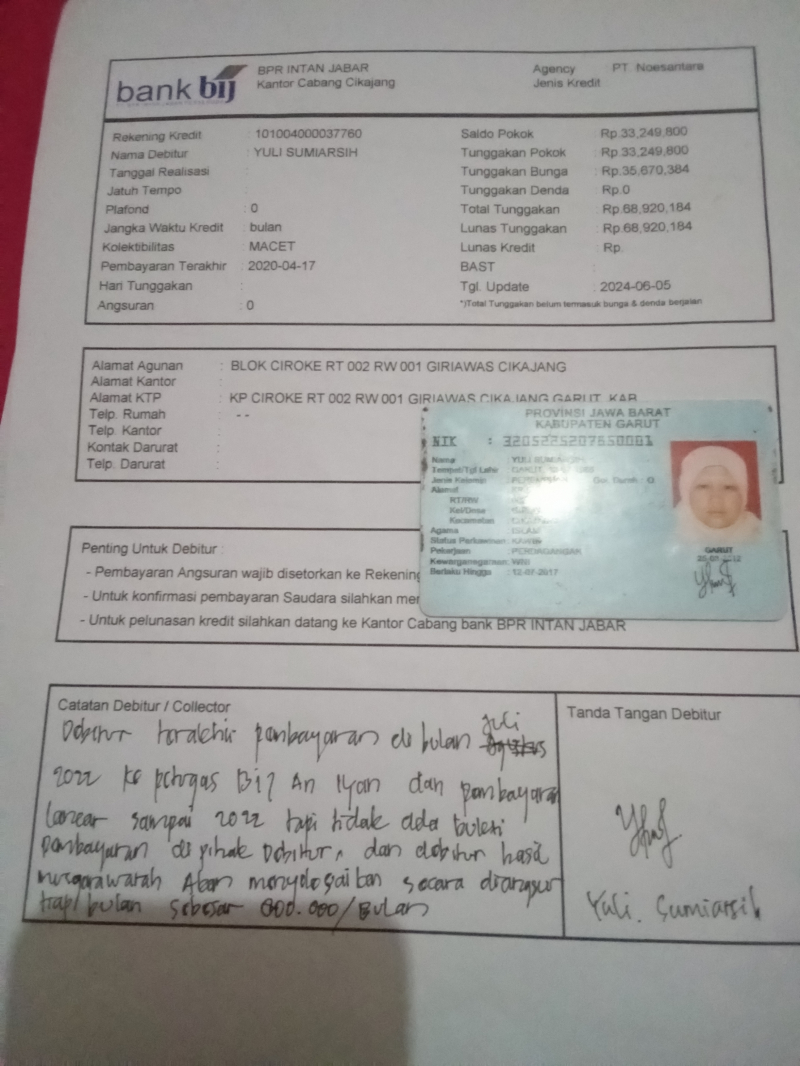 bank bij
BPR INTAN JABAR
Kantor Cabang Cikajang
Agency : PT Noesantara
Jenis Kredit
Rekening Kredit : 101004000037760
Nama Debitur : YULI SUMIARSIH
Tanggal Realisasi :
Jatuh Tempo :
Plafond : 0
Jangka Waktu Kredit : bulan
Kolektibilitas : MACET
Pembayaran Terakhir : 2020-04-17
Hari Tunggakan :
Angsuran : 0
Saldo Pokok : Rp.33,249,800
Tunggakan Pokok : Rp.33,249,800
Tunggakan Bunga : Rp.35,670,384
Tunggakan Denda : Rp.0
Total Tunggakan : Rp.68,920,184
Lunas Tunggakan : Rp.68,920,184
Lunas Kredit : Rp.
BAST :
Tgl. Update : 2024-06-05
*)Total Tunggakan belum termasuk bunga & denda berjalan
Alamat Agunan : BLOK CIROKE RT 002 RW 001 GIRIAWAS CIKAJANG
Alamat Kantor :
Alamat KTP : KP CIROKE RT 002 RW 001 GIRIAWAS CIKAJANG GARUT, KAB
Telp. Rumah : --
Telp. Kantor :
Kontak Darurat :
Telp. Darurat :
PROVINSI JAWA BARAT
KABUPATEN GARUT
NIK : 3205225207650001
Nama : YULI
Tempat/Tgl Lahir : GARUT,
Jenis Kelamin : Gol. Darah : O
Alamat
RT/RW
Kel/Desa
Kecamatan
Agama : ISLAM
Status Perkawinan : KAWIN
Pekerjaan : PERDAGANGAN
Kewarganegaraan: WNI
Berlaku Hingga : 12-07-2017
GARUT
Penting Untuk Debitur :
- Pembayaran Angsuran wajib disetorkan ke Rekening
- Untuk konfirmasi pembayaran Saudara silahkan
- Untuk pelunasan kredit silahkan datang ke Kantor Cabang bank BPR INTAN JABAR
Catatan Debitur / Collector
Debitur terakhir pembayaran di bulan juli
2022 ke petugas Bij An Iyan dan pembayaran
lancar sampai 2022 tapi tidak ada bukti
pembayaran di pihak Debitur, dan debitur hasil
Akan menyelesaikan secara diangsur
tiap/bulan sebesar 600.000/Bulan
Tanda Tangan Debitur
Yuli. Sumiarsih